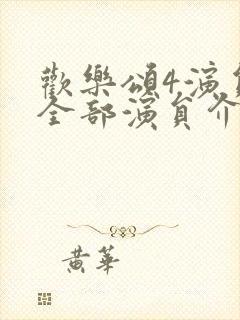 歡樂頌4演員
全部演員介
黃華